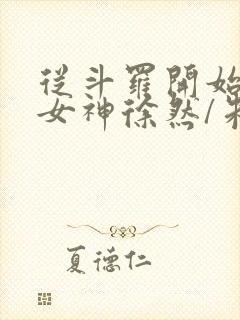 從斗羅開始
女神徐然/
夏德仁